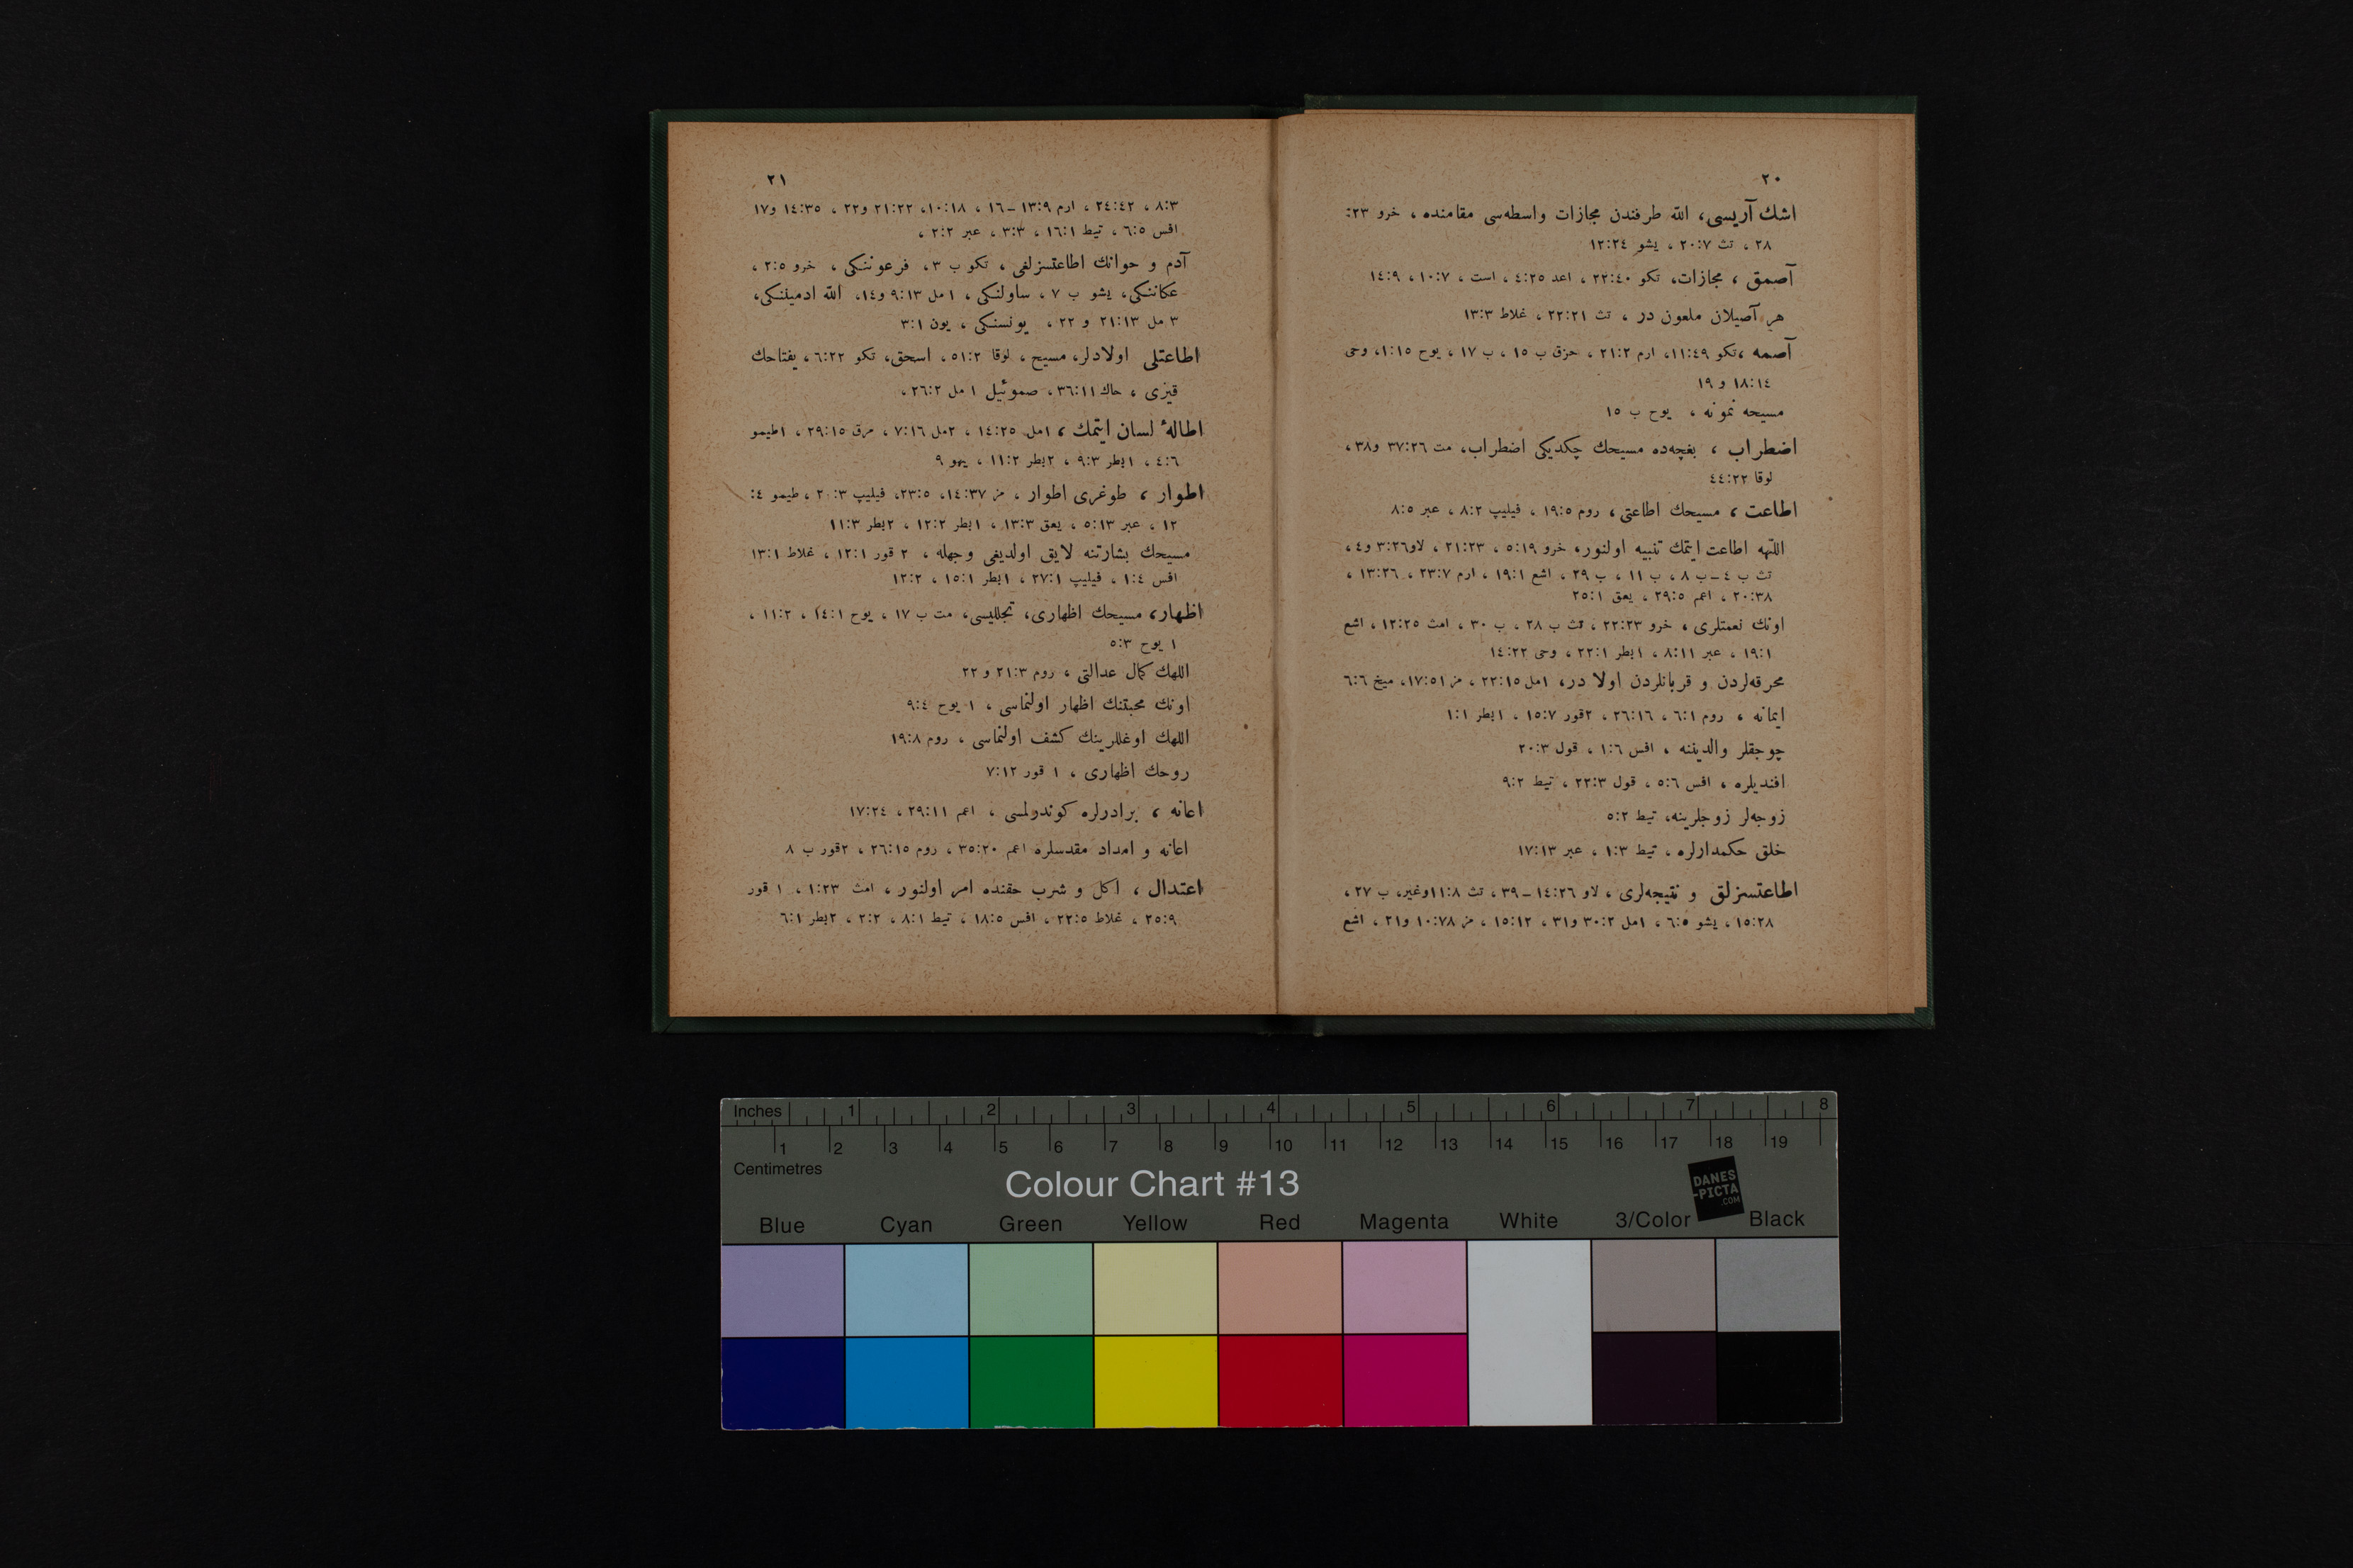 ٢٠
اشك آریسی، اللّه طرفندن مجازات واسطه‌سی مقامنده ، خرو ٢٣:
٢٨ ، تث ٢٠:٧ ، یشو ١٢:٢٤
آصمق ، مجازات، تكو ٢٢:٤٠ ، اعد ٤:٢٥ ، است ، ١٠:٧ ، ١٤:٩
هر آصیلان ملعون در ، تث ٢٢:٢١ ، غلاط ١٣:٣
آصمه ،تكو ١١:٤٩، ارم ٢١:٢ ، حزق ب ١٥ ، ب ١٧ ، یوح ١:١٥، وحی
١٨:١٤ و ١٩
مسیحه نمونه ، یوح ب ١٥
اضطراب ، بغچه‌ده مسیحك چكدیكی اضطراب، مت ٣٧:٢٦ و٣٨ ،
لوقا ٤٤:٢٢
اطاعت ، مسیحك اطاعتی ، روم ١٩:٥ ، فیلیپ ٨:٢ ، عبر ٨:٥
اللّهه اطاعت ایتمك تنبیه اولنور، خرو ٥:١٩ ، ٢١:٢٣ ، لاو٣:٢٦ و٤ ،
تث ب ٤ـ ب ٨ ، ب ١١ ، ب ٢٩ ، اشع ١٩:١ ، ارم ٢٣:٧ ، ١٣:٢٦ ،
٢٠:٣٨ ، اعم ٢٩:٥ ، یعق ٢٥:١
اونك نعمتلری ، خرو ٢٢:٢٣ ، تث ب ٢٨ ، ب ٣٠ ، امث ١٢:٢٥ ، اشع
١٩:١ ، عبر ٨:١١ ، ١بطر ٢٢:١ ، وحی ١٤:٢٢
محرقه‌لردن و قربانلردن اولا در، ١مل ٢٢:١٥ ، مز ١٧:٥١، میخ ٦:٦
ایمانه ، روم ٦:١ ، ٢٦:١٦ ، ٢قور ١٥:٧ ، ١بطر ١:١
چوجقلر والدیننه ، افس ١:٦ ، قول ٢٠:٣
افندیلره ، افس ٥:٦ ، قول ٢٢:٣ ، تیط ٩:٢
زوجه‌لر زوجلرینه، تیط ٥:٢
خلق حكمدارلره ، تیط ١:٣ ، عبر ١٧:١٣
اطاعتسزلق و نتیجه‌لری ، لاو ١٤:٢٦ ـ ٣٩ ، تث ١١:٨وغیر، ب ٢٧ ،
١٥:٢٨ ، یشو ٦:٥ ، ١مل ٣٠:٢ و٣١ ، ١٥:١٢ ، مز ١٠:٧٨ و٢١ ، اشع
٢١
٨:٣ ، ٢٤:٤٢ ، ارم ١٣:٩ ـ ١٦ ، ١٠:١٨، ٢١:٢٢ و٢٢ ، ١٤:٣٥ و١٧
افس ٦:٥ ، تیط ١٦:١ ، ٣:٣ ، عبر ٢:٢ ،
آدم و حوانك اطاعتسزلغی ، تكو ب ٣ ، فرعوننكی ، خرو ٢:٥ ،
عكاننكی، یشو ب ٧ ، ساولنكی ، ١مل ٩:١٣ و١٤، اللّه ادمیننكی،
٣ مل ٢١:١٣ و ٢٢ ، یونسنكی ، یون ٣:١
اطاعتلی اولادلر، مسیح ، لوقا ٥١:٢ ، اسحق، تكو ٦:٢٢ ، یفتاحك
قیزی ، حاك ٣٦:١١ ، صموئیل ١ مل ٢٦:٢ ،
اطالهٔ لسان ایتمك ، ١مل ١٤:٢٥ ، ٢مل ٧:١٦ ، مرق ٢٩:١٥ ، ١طیمو
٤:٦ ، ١بطر ٩:٣ ، ٢بطر ١١:٢ ، یهو ٩
اطوار ، طوغری اطوار ، مز ١٤:٣٧، ٢٣:٥، فیلیپ ٢٠:٣ ، طیمو ٤:
١٢ ، عبر ٥:١٣ ، یعق ١٣:٣ ، ١بطر ١٢:٢ ، ٢بطر ١١:٣
مسیحك بشارتنه لایق اولدیغی وجهله ، ٢ قور ١٢:١ ، غلاط ١٣:١
افس ١:٤ ، فیلیپ ٢٧:١ ، ١بطر ١٥:١ ، ١٢:٢
اظهار، مسیحك اظهاری، تجلیسی، مت ب ١٧ ، یوح ١٤:١ ، ١١:٢ ،
١ یوح ٥:٣
اللهك كمال عدالتی ، روم ٢١:٣ و ٢٢
اونك محبتنك اظهار اولنماسی ، ١ یوح ٩:٤
اللهك اوغللرینك كشف اولنماسی ، روم ١٩:٨
روحك اظهاری ، ١ قور ٧:١٢
اعانه ، برادرلره كوندرلمسی ، اعم ٢٩:١١ ، ١٧:٢٤
اعانه و امداد مقدسلره اعم ٣٥:٢٠ ، روم ٢٦:١٥ ، ٢قور ب ٨
اعتدال ، اكل و شرب حقنده امر اولنور ، امث ١:٢٣ ، ١ قور
٢٥:٩ ، غلاط ٢٢:٥ ، افس ١٨:٥ ، تیط ٨:١ ، ٢:٢ ، ٢بطر ٦:١
Inches 1 2 3 4 5 6 7 8
1 2 3 4 5 6 7 8 9 10 11 12 13 14 15 16 17 18 19
Centimetres
Colour Chart #13
DANES
-PICTA
.COM
Blue Cyan Green Yellow Red Magenta White 3/Color Black